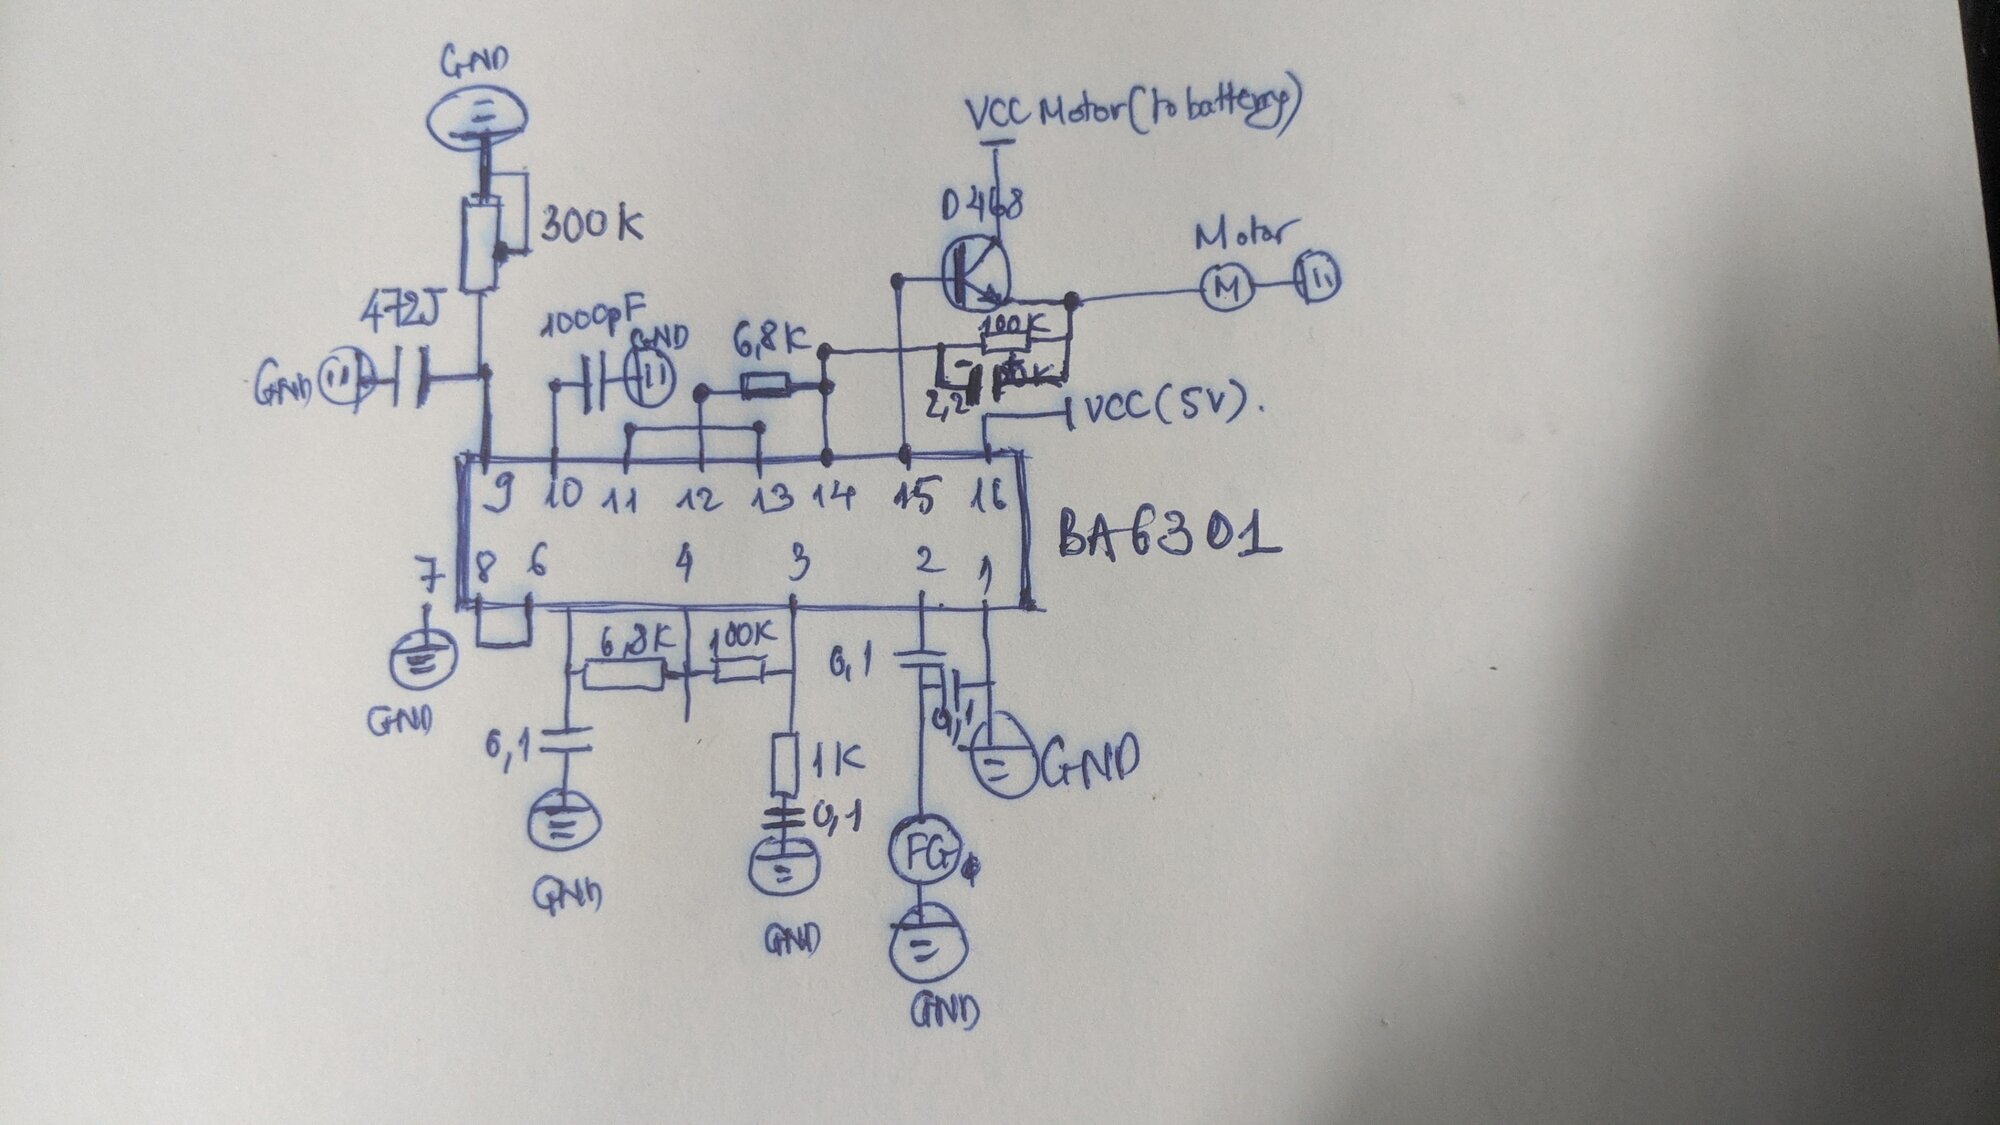 GND
VCC Motor (to battery)
D468
300K
Motor
M
472J
1000pF
GND
6,8K
100K
GND
2,2
VCC (5V).
9 10 11 12 13 14 15 16
BA6301
7 8 6 4 3 2 1
6,8K
100K
0,1
GND
0,1
0,1
1K
GND
0,1
FG
GND
GND
GND